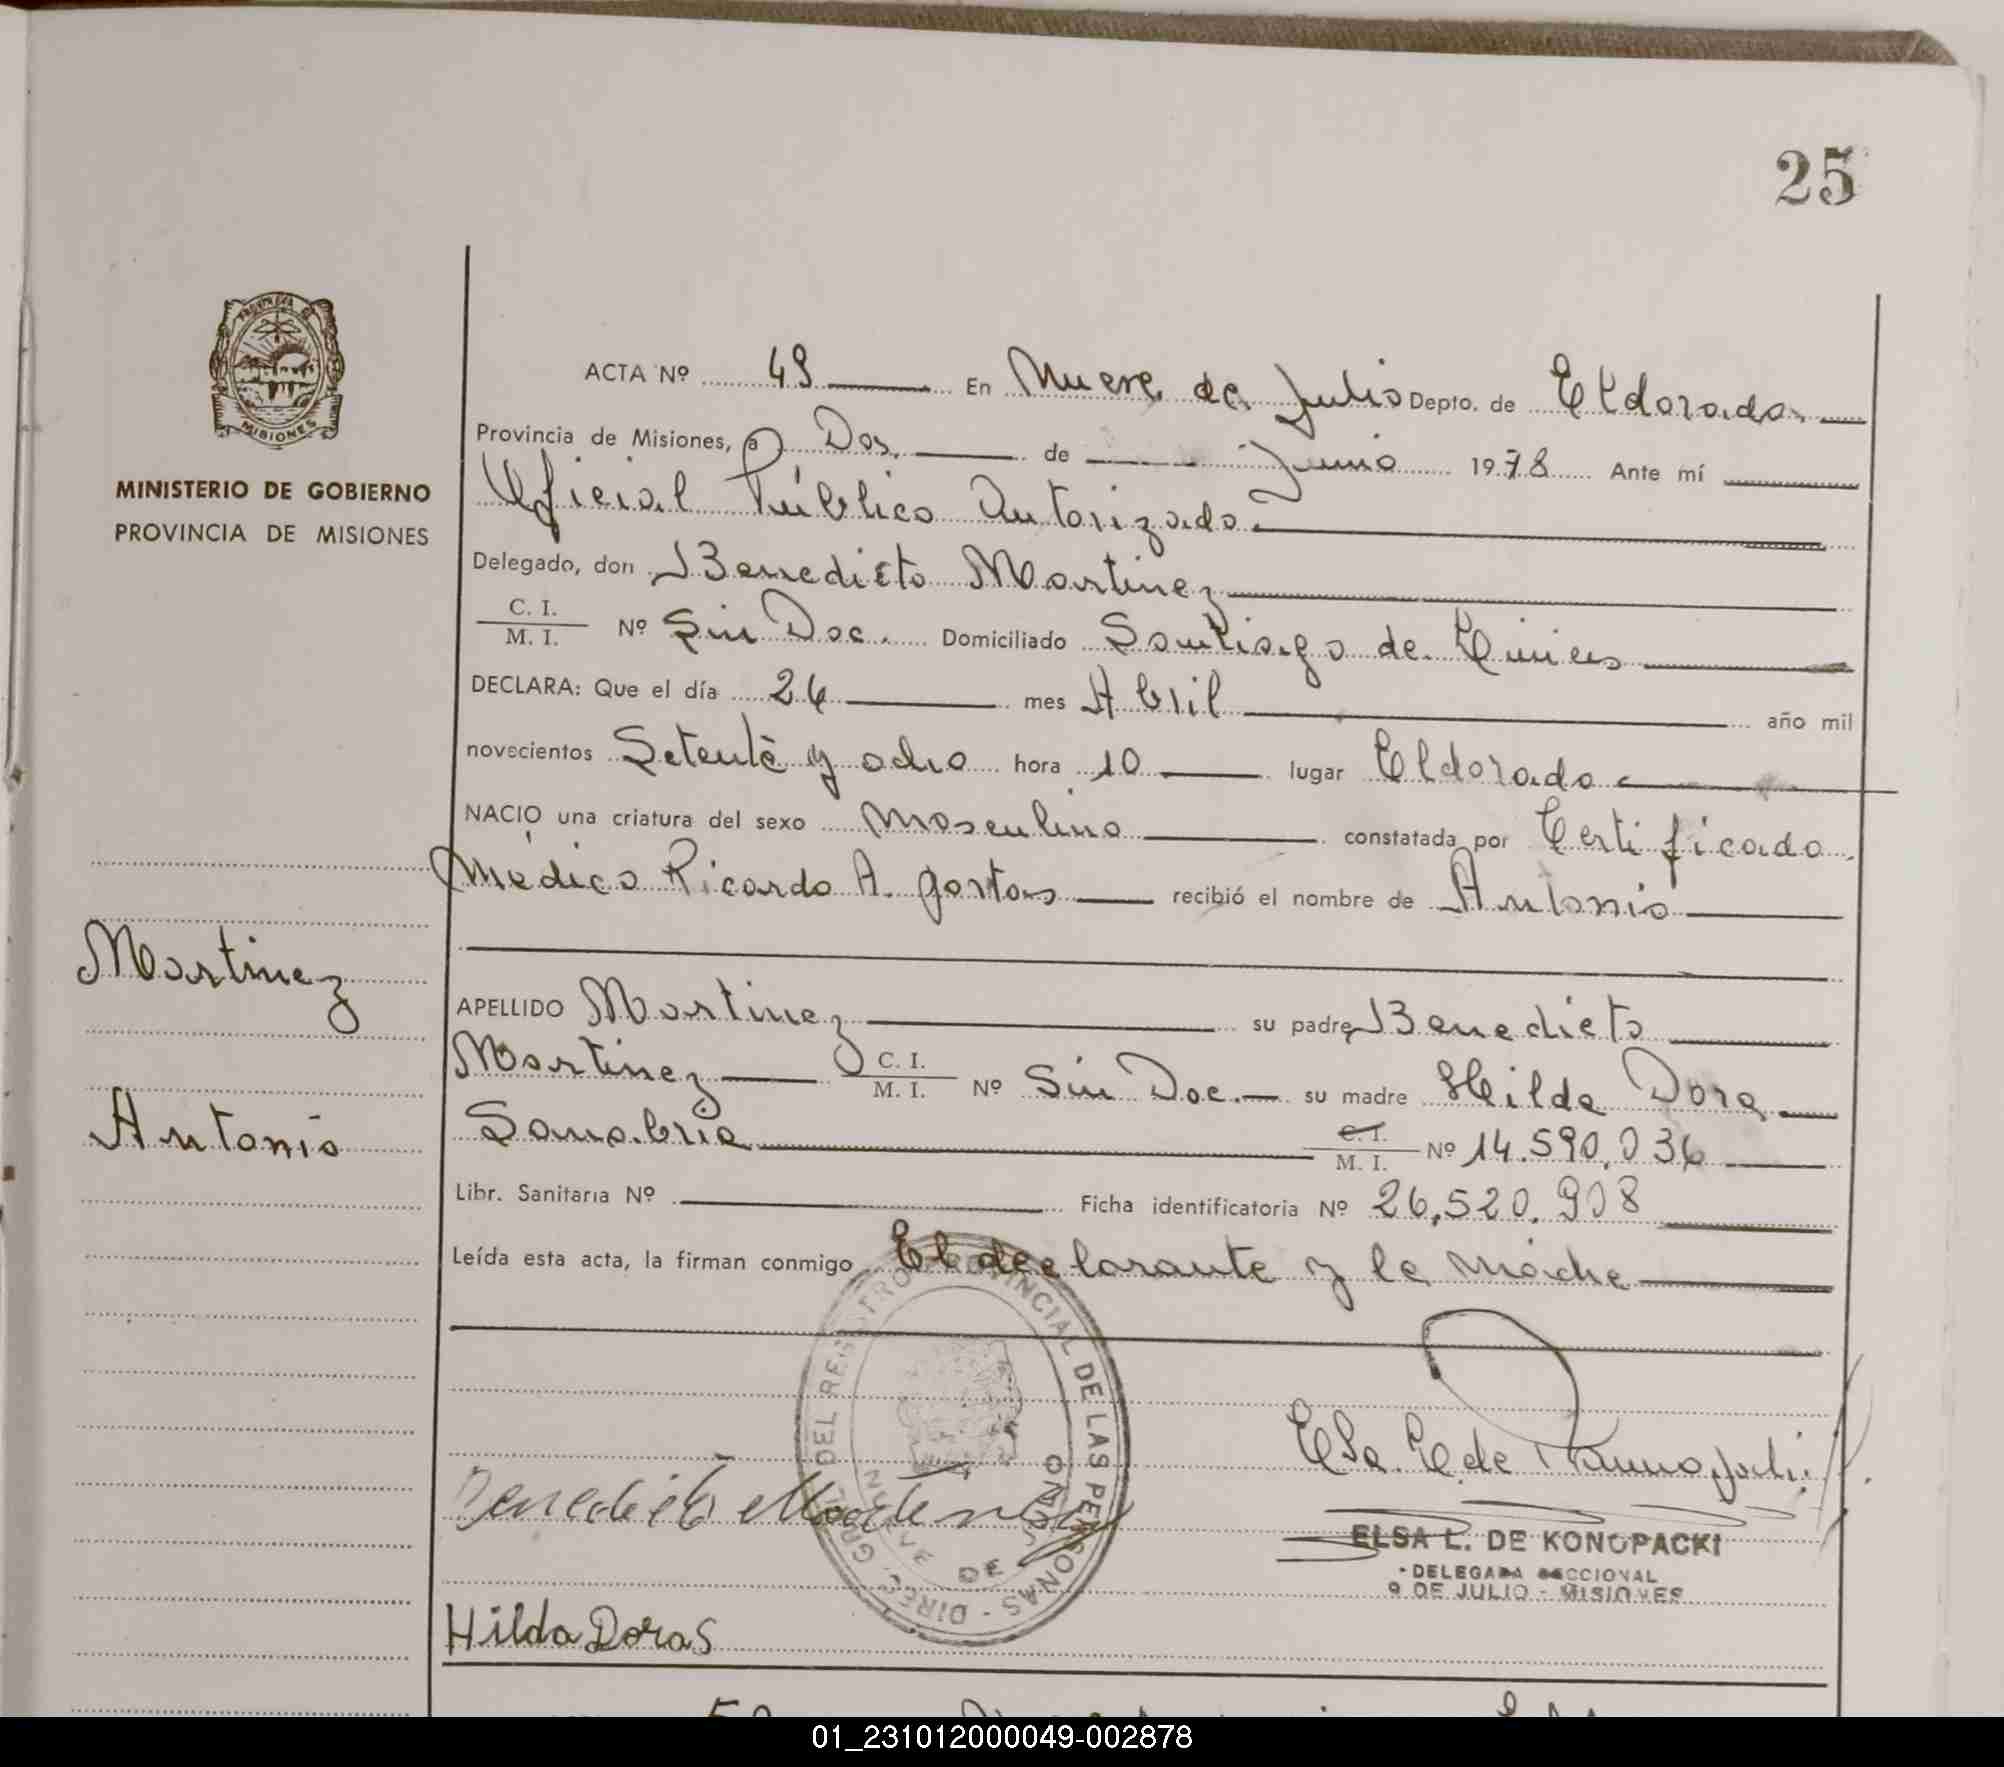 25
PROVINCIA DE
MISIONES
MINISTERIO DE GOBIERNO
PROVINCIA DE MISIONES
ACTA Nº 49 En Nueve de Julio Depto. de Eldorado
Provincia de Misiones, a Dos de Junio 1978 Ante mí
Oficial Público Autorizado
Delegado, don Benedicto Martinez
C. I.
M. I. Nº Sin Doc. Domiciliado Santiago de Liniers
DECLARA: Que el día 26 mes Abril año mil
novecientos Setenta y ocho hora 10 lugar Eldorado
NACIO una criatura del sexo Masculino constatada por Certificado
Médico Ricardo A. recibió el nombre de Antonio
Martinez
APELLIDO Martinez su padre Benedicto
Martinez C. I.
M. I. Nº Sin Doc. su madre Hilda Dora
Antonio
Sanabria C. I.
M. I. Nº 14.590.036
Libr. Sanitaria Nº Ficha identificatoria Nº 26,520.908
Leída esta acta, la firman conmigo El declarante y la madre
DIREC. GRAL. DEL REGISTRO PROVINCIAL DE LAS PERSONAS
NUEVE DE
Benedicto Martinez
ELSA L. DE KONOPACKI
DELEGADA SECCIONAL
9 DE JULIO - MISIONES
Hilda Doras
01_231012000049-002878